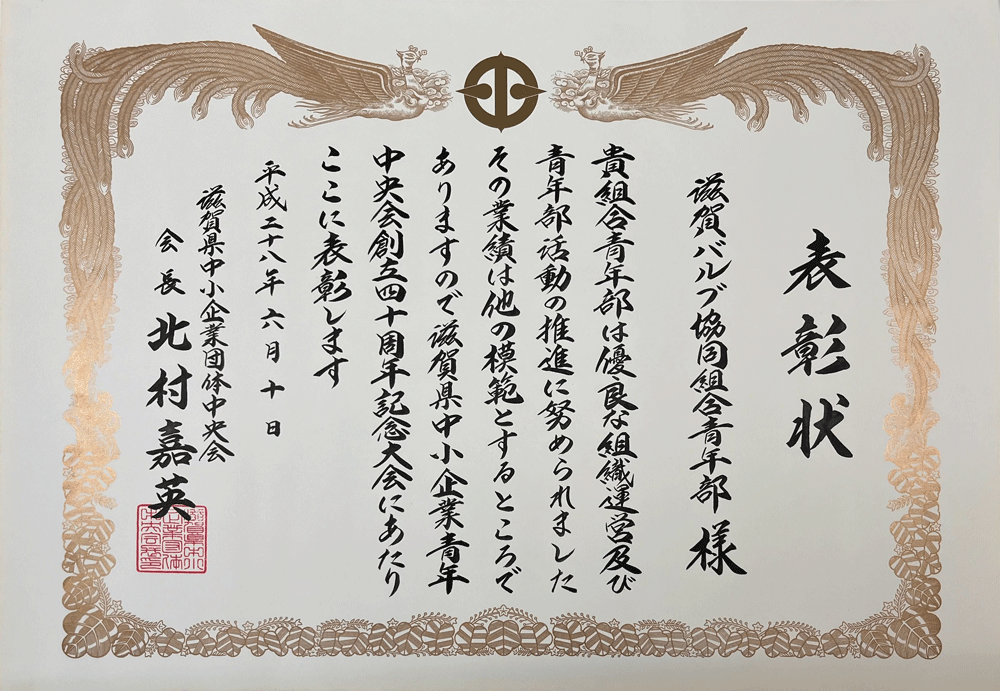 表彰状
滋賀バルブ協同組合青年部 様
貴組合青年部は優良な組織運営及び
青年部活動の推進に努められました
その業績は他の模範とするところで
ありますので滋賀県中小企業青年
中央会創立四十周年記念大会にあたり
ここに表彰します
平成二十八年六月十日
滋賀県中小企業団体中央会
会長 北村嘉英